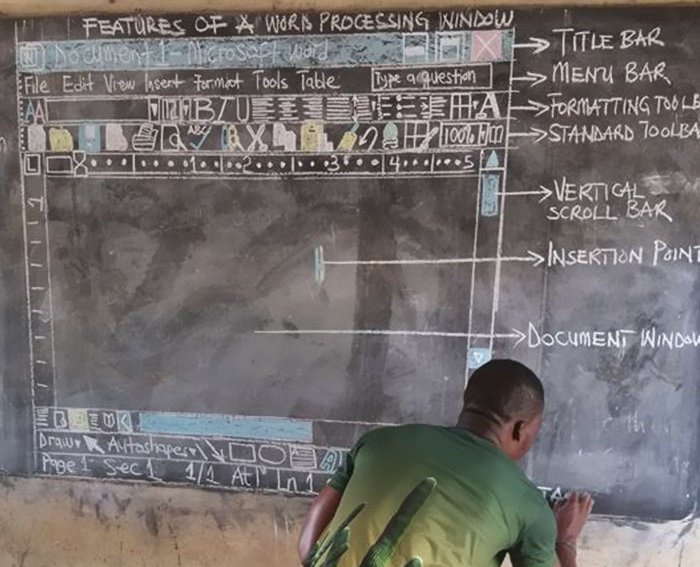 FEATURES OF A WORD PROCESSING WINDOW
Document 1 - Microsoft Word
TITLE BAR
File Edit View Insert Format Tools Table
Type a question
MENU BAR
AA
12
B I U
A
FORMATTING TOOL
ABC
100%
STANDARD TOOLBA
L
1 2 3 4 5
1
VERTICAL
SCROLL BAR
INSERTION POINT
DOCUMENT WINDOW
Draw Autoshapes
A
Page 1 Sec 1 1/1 At 1" Ln 1
TA